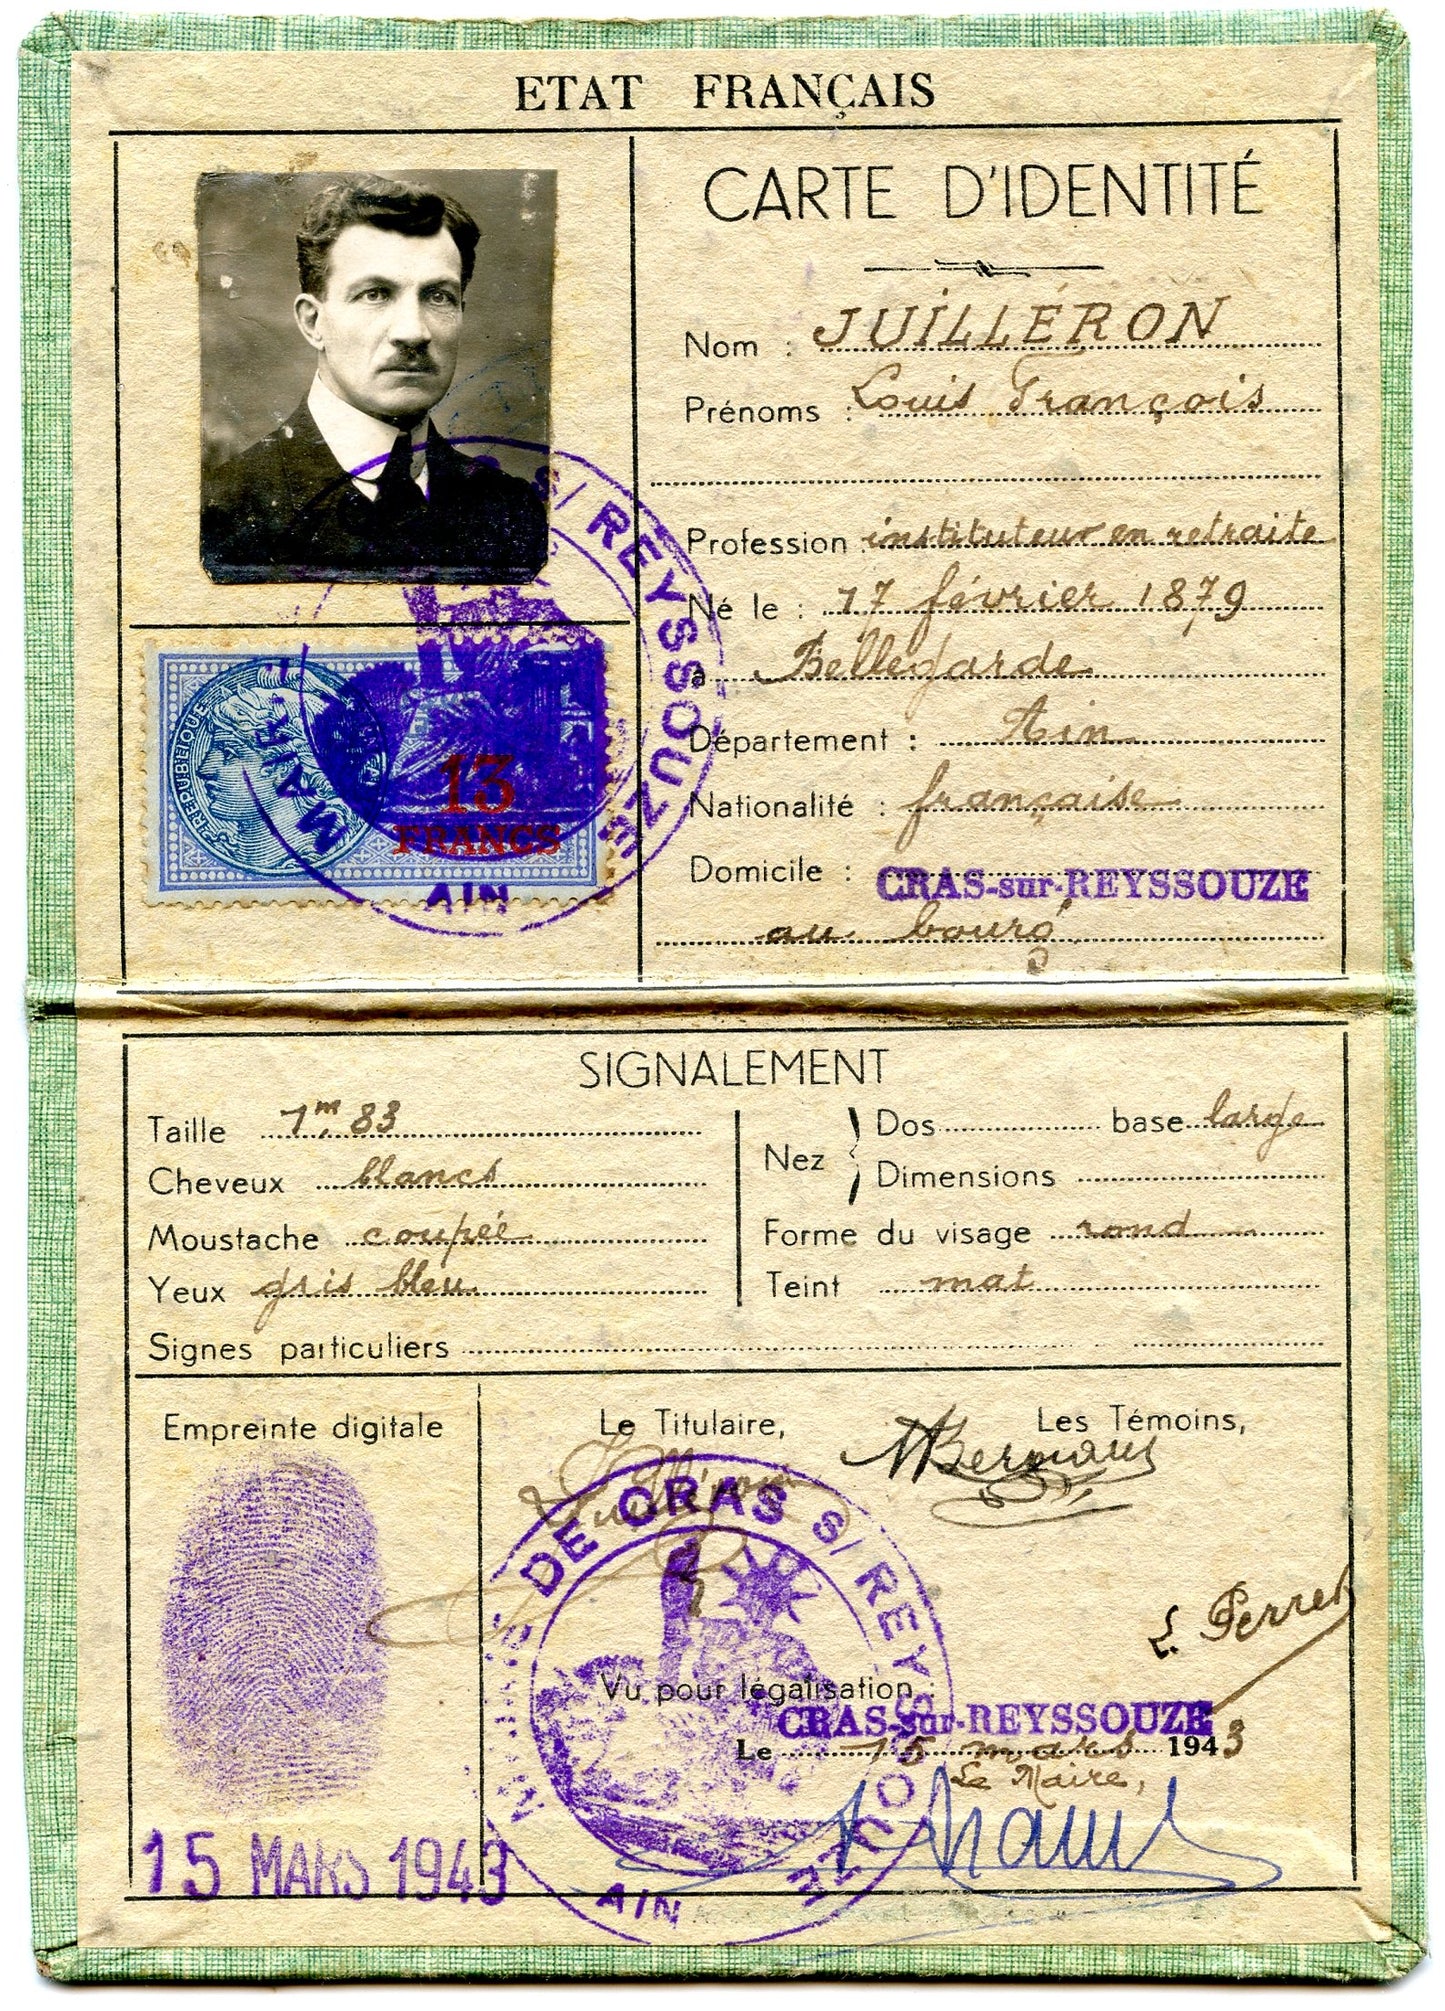 ETAT FRANÇAIS
CARTE D'IDENTITÉ
Nom : JUILLÉRON
Prénoms : Louis François
Profession : instituteur en retraite
Né le : 17 février 1879
à Bellegarde
Département : Ain
Nationalité : française
Domicile : CRAS-sur-REYSSOUZE
au bourg
S/ REYSSOUZE
AIN
REPUBLIQUE
13
FRANCS
SIGNALEMENT
Taille 1m,83
Cheveux blancs
Moustache coupée
Yeux gris bleu
Nez Dos base large
Dimensions
Forme du visage rond
Teint mat
Signes particuliers
Empreinte digitale
Le Titulaire,
Les Témoins,
Juilléron
DE CRAS S/ REYSSOUZE
AIN
Vu pour légalisation :
CRAS-sur-REYSSOUZE
Le 15 mars 1943
Le Maire,
15 MARS 1943